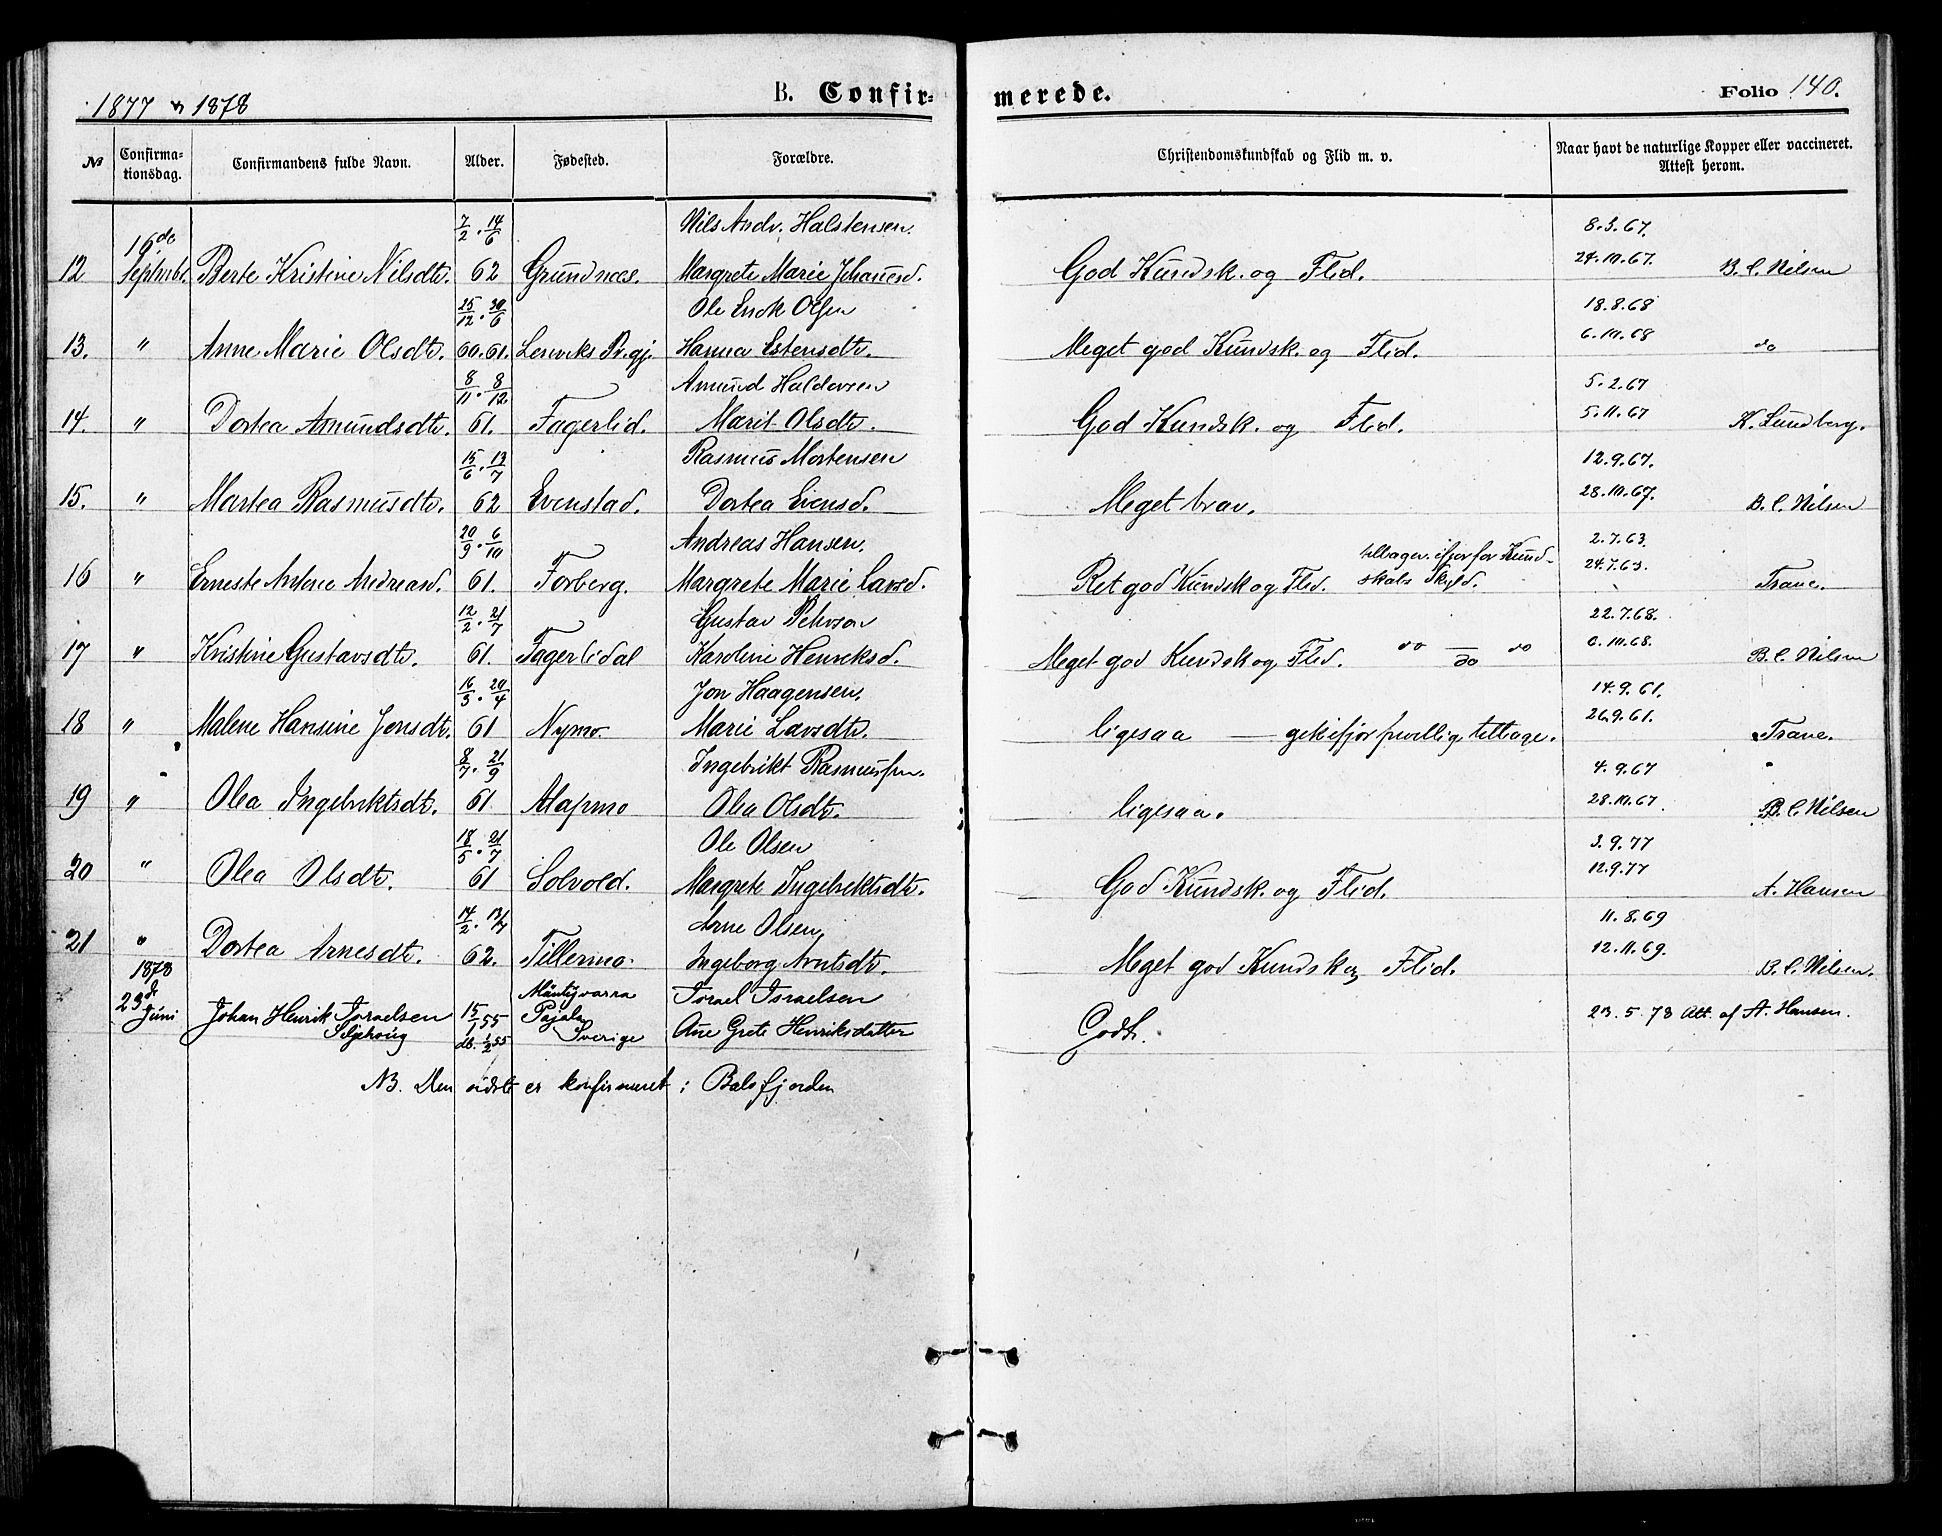 1877 & 1878
B. Confir-
merede.
Folio 140.
№ Confirma-tionsdag. Confirmandens fulde Navn. Alder. Fødested. Forældre. Christendomskundskab og Flid m. v. Naar havt de naturlige Kopper eller vaccineret. Attest herom.
16de 7/2 . 14/6 Nils Andr. Halstensen 8.3.67.
12 Septmbr. Berte Kristine Nilsdtr. 62 Grundnæs. Margrete Marie Johannesd. God Kundsk. og Flid. 24.10.67. B. C. Nilsen
25/12 . 20/6 Ole Erick Olsen 18.8.68
13. " Anne Marie Olsdtr. 60.61. Lenviks Prgj. Hanna Estensdtr. Meget god Kundsk. og Flid. 6.10.68 do
8/11 . 8/12 Amund Haldorsen 5.2.67
14. " Dortea Amundsdtr. 61. Fagerlid. Marit Olsdtr. God Kundsk. og Flid. 5.11.67 K. Lundberg.
15/6 . 13/7 Rasmus Mortensen 12.9.67.
15. " Martea Rasmusdtr. 62 Evenstad. Dortea Eriensd. Meget brav. 28.10.67. B. C. Nilsen
20/9 . 6/10 Andreas Hansen. 2.7.63.
16 " Erneste Antonie Andreasd. 61. Forberg. Margrete Marie Larsd. Ret god Kundsk og Flid. tilbager. ifjor for Kund-skabs Skyld. 24.7.63. Trane.
12/2 . 21/7 Gustav Pehrson 22.7.68.
17 " Kristine Gustavsdtr. 61. Fagerlidal Karoline Henriksd. Meget god Kundsk og Flid. do do do 6.10.68. B. C. Nilsen
16/3 . 20/4 Jon Haagensen. 14.9.61.
18 " Malene Hansine Jonsdtr. 61 Nymo. Marie Larsdtr. ligesaa — gik ifjor frivillig tilbage. 26.9.61. Trane.
8/7 . 21/9 Ingebrikt Rasmussen. 4.9.67
19 " Olea Ingebriktsdtr. 61 Alapmo Olea Olsdtr. ligesaa. 28.10.67 B. C. Nilsen
18/5 . 21/7 Ole Olsen 3.9.77
20 " Olea Olsdtr. 61 Solvold. Margrete Ingebriktsdtr. God Kundsk. og Flid. 12.9.77 A. Hansen
14/2 . 13/7 Arne Olsen 11.8.69
21 " Dortea Arnesdtr. 62. Tillermo. Ingeborg Arntsdtr. Meget god Kundsk og Flid. 12.11.69. B. C. Nilsen.
1878
23de Juni Johan Henrik Israelsen 15/1 55 Mäntyvarra Pajala Sverige Israel Israelsen Ane Grete Henriksdatter Godt. 23.5.78 Att. af A. Hansen.
db. 1/2 55
NB. Den sidste er konfirmeret i Balsfjorden